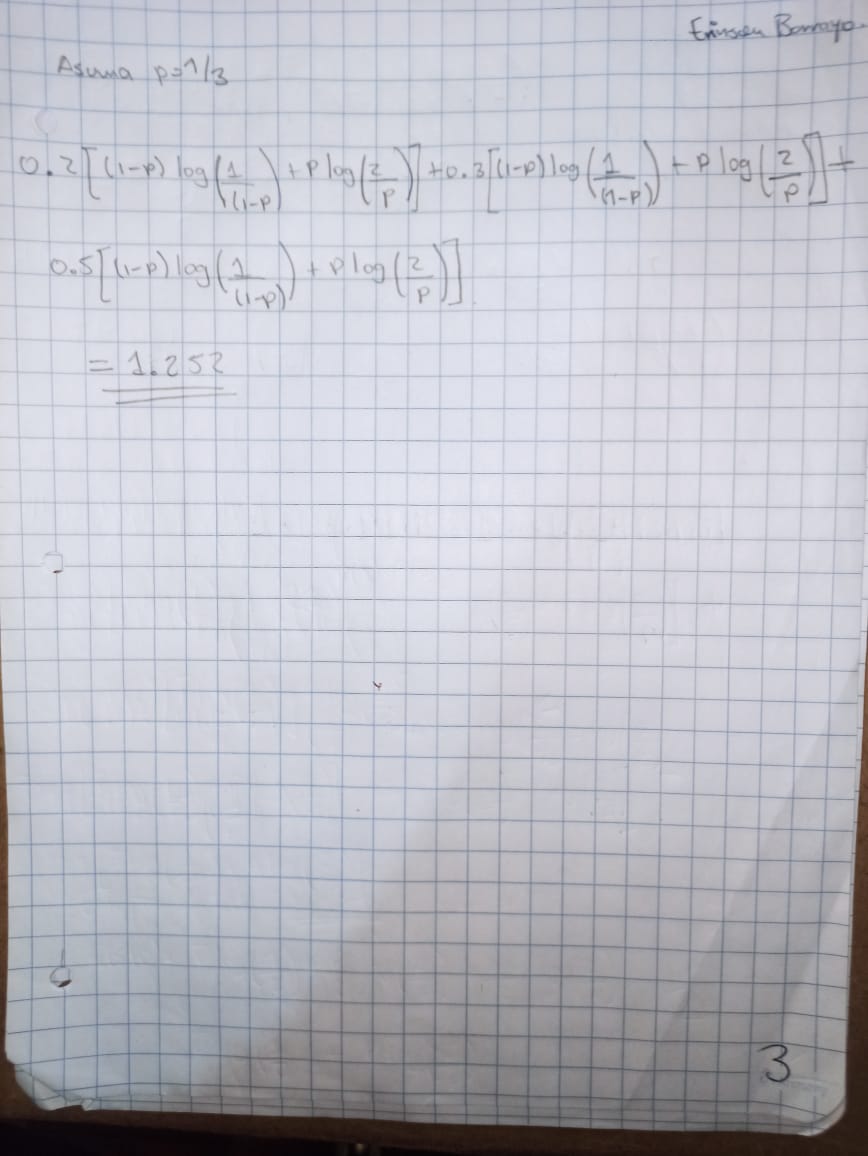 Asuma p=1/3
0.2[(1-p) log(1/(1-p)) + p log(2/p)] + 0.3[(1-p) log(1/(1-p)) + p log(2/p)] +
0.5[(1-p) log(1/(1-p)) + p log(2/p)]
= 1.252
3